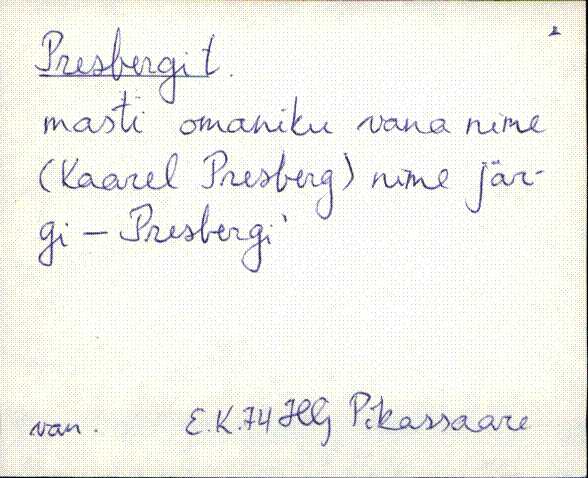 Presbergi t.
masti omaniku vana nime
(Kaarel Presberg) nime jär-
gi – Presbergi'
van. E.K.74 HG Pikassaare